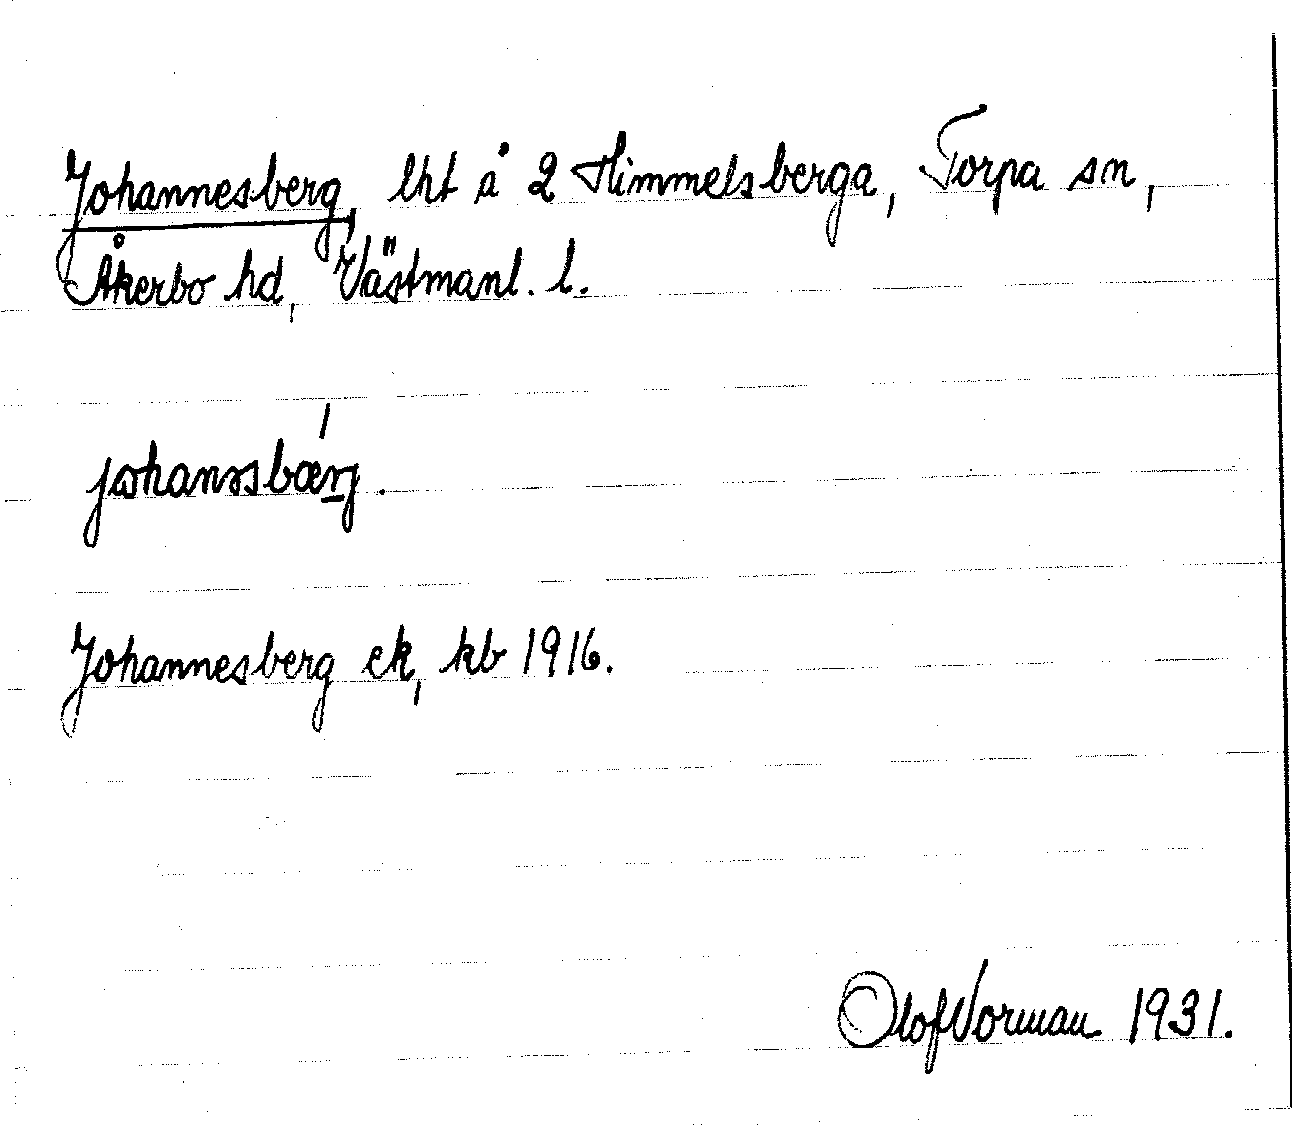 Johannesberg, lht å 2 Himmelsberga, Torpa sn,
Åkerbo hd, Västmanl. l.
johanəsbærj.
Johannesberg ek, kb 1916.
Olof Norman 1931.